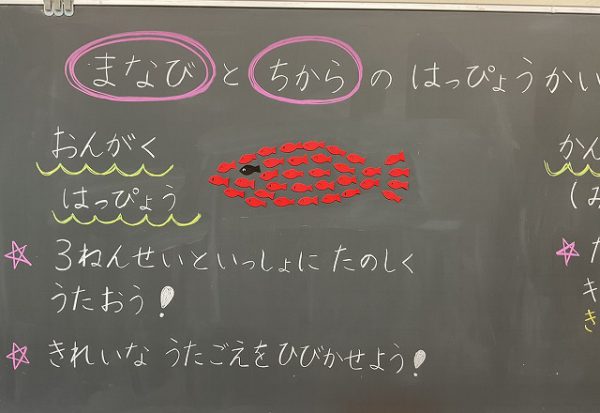 まなびとちからのはっぴょうかい
おんがく
はっぴょう
3ねんせいといっしょに たのしく
うたおう!
きれいな うたごえをひびかせよう!
かん
(み
た
キ
き